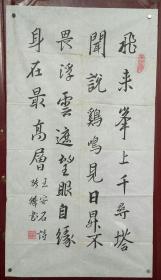 飛来峯上千尋塔
聞說鷄鳴見日昇不
畏浮雲遮望眼自緣
身在最高層
王安石詩